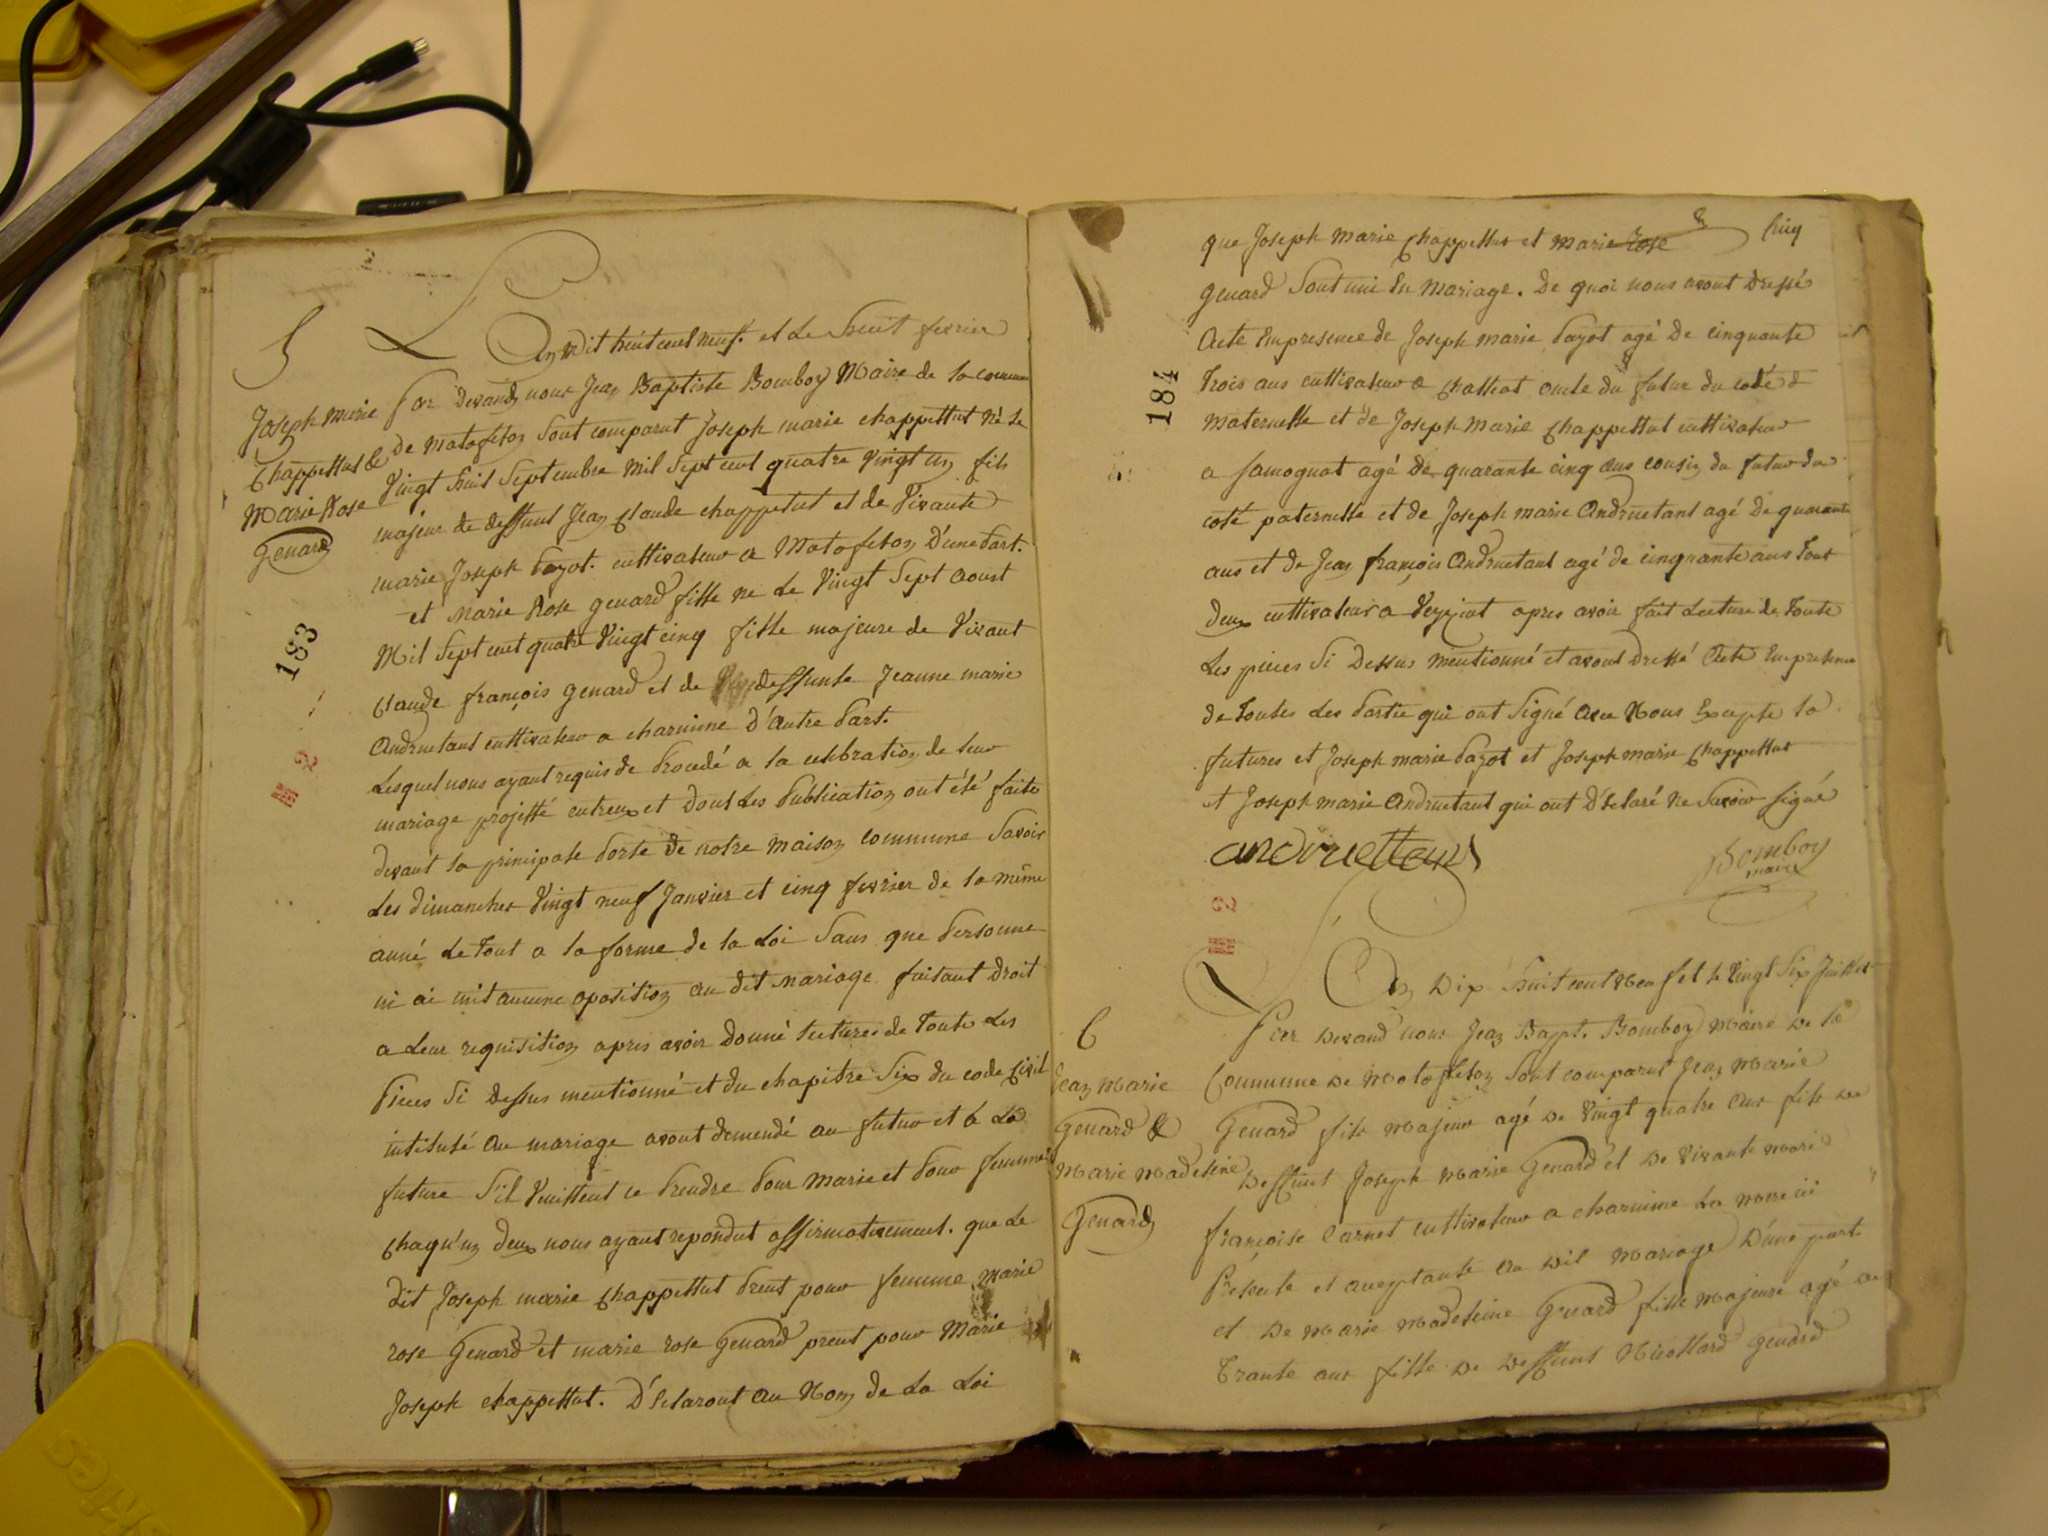 5
Joseph Marie
Chappettut &
Marie Rose
Genard
183
L'An Dix huit cent neuf. et Le huit fevrier
Par devand nous Jean Baptiste Bomboy Maire de la commune
de Matafelon Sont comparut Joseph marie chappettut Né Le
Vingt huit Septembre Mil Sept cent quatre Vingt un fils
majeur de deffunt Jean Claude chappetut et de Vivante
marie Joseph Payot. cultivateur a Matafelon D'une Part.
et Marie Rose genard fille né Le Vingt Sept aoust
Mil Sept cent quatre Vingt cinq fille majeure de Vivant
Claude françois genard et de deffunte Jeanne marie
Andruetant cultivateur a charnine D'autre Part.
Lesquel nous ayant requis de Procedé a la celebration de leur
mariage projetté entreux et dont Les Publication ont été faite
devant la principale Porte de notre maison commune Savoir
Les dimanches Vingt neuf Janvier et cinq fevrier de la même
anné Le Tout a la forme de la Loi Sans que Personne
ni ai mit aucune oposition au dit mariage faisant Droit
a Leur requisition apres avoir donné lectures de Toute Les
Pieces Si Dessus mentionné et du chapitre Six du code Civil
intitulé du mariage avont demendé au futur et à La
future S'il Veuillent ce Prendre Pour Marie et Pour femme
Chaqu'un deux nous ayant repondut affirmativement. que Le
dit Joseph marie Chappettut Prent pour femme Marie
rose Genard et marie rose Genard prent pour Marie
Joseph chappettut. D'Eclaront au Nom de La Loi
cinq
184
que Joseph Marie Chappettut et Marie Rose
genard Sont uni En Mariage. De quoi nous avont Dressé
Acte En presence de Joseph marie Payot agé De cinquante
Trois ans cultivateur a Challiat oncle du futur du coté
maternelle et de Joseph Marie Chappettut cultivateur
a Samognat agé de quarante cinq ans cousin du futur du
coté paternelle et de Joseph marie Andruetant agé de quarante
ans et de Jean françois Andruetant agé de cinquante ans Tout
deux cultivateur a Veyziat apres avoir fait Lecture de Toute
Les pieces Si Dessus mentionné et avont Dressé Acte En presence
de Toutes Les Partie qui ont Signé Avec Nous Excepte la
futures et Joseph marie Payot et Joseph marie Chappettut
et Joseph marie Andruetant qui ont D'Eclaré Ne Savoir Signé
andruettant
Bomboy
maire
6
Jean Marie
Genard &
Marie Madeleine
Genard
L'An Dix huit cent Neuf et le Vingt Six Juillet
Par Devand nous Jean Bapt. Bomboy Maire De la
Commune De Matafelon Sont comparut Jean Marie
Genard fils majeur agé De Vingt quatre Ans fils De
Deffunt Joseph Marie Genard et De Vivante Marie
françoise Carnet cultivateur a charnine La Mere ici
Présente et acceptante au Dit Mariage D'une part
et De Marie Madeleine Genard fille Majeure agé De
Trante ans fille De Deffunt Nicollard Genard